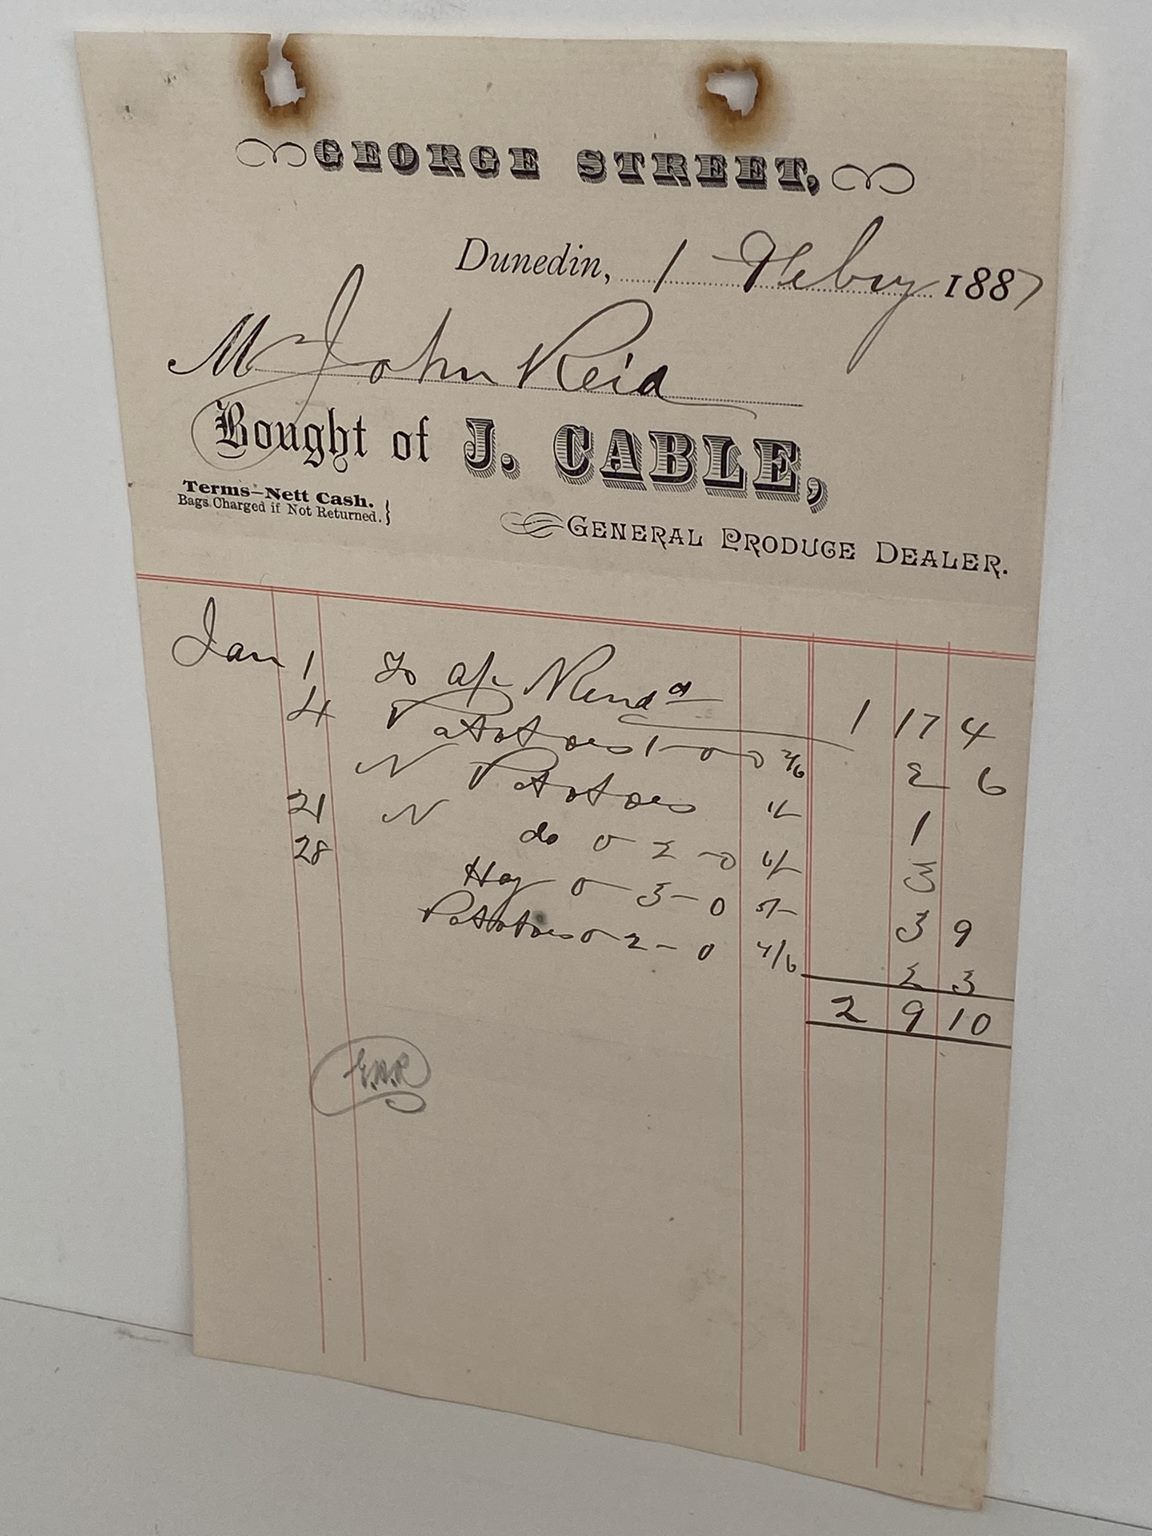 GEORGE STREET,
Dunedin, 1 Febry 1887
Mr John Reid
Bought of J. CABLE,
Terms—Nett Cash.
Bags Charged if Not Returned.}
GENERAL PRODUCE DEALER.
Jan 1 To a/c Rend 1 17 4
4 Potatoes 1-0-0 2/6 2 6
N Potatoes 1/- 1
21 N do 0-2-0 6/- 3
28 Hay 0-3-0 5/- 3 9
Potatoes 0-2-0 4/6 2 3
2 9 10